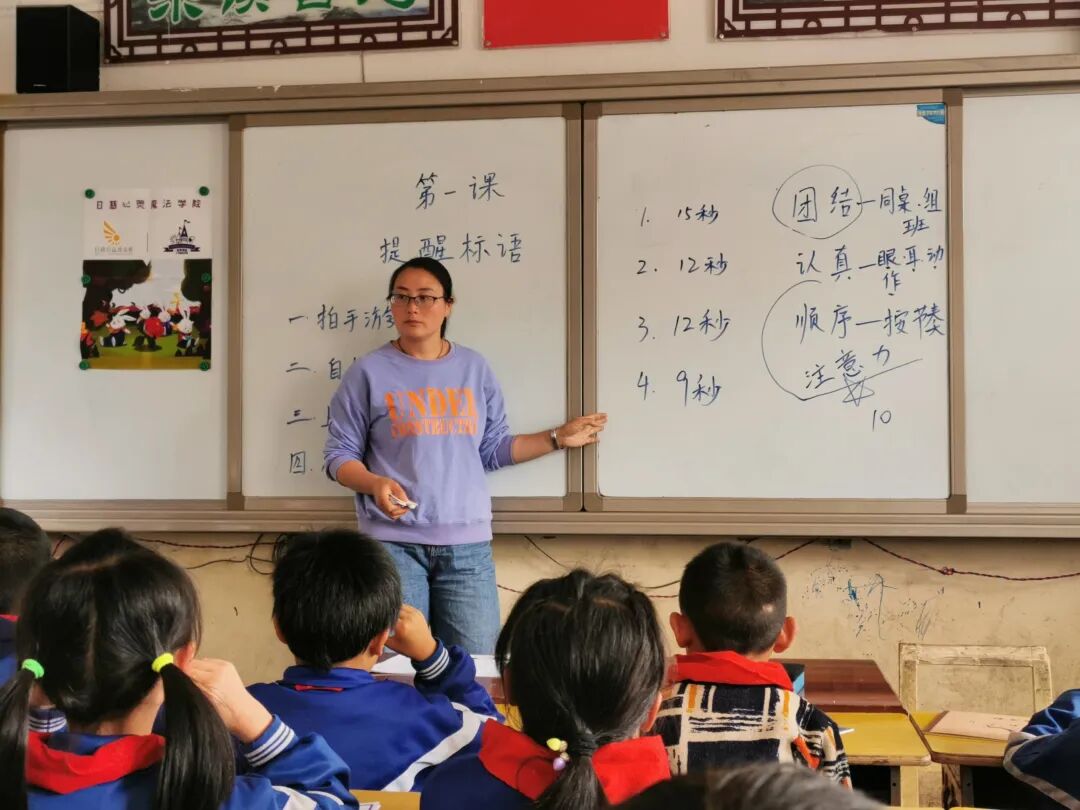 日慈心灵魔法学院
第一课
提醒标语
一拍手游
二.自
三.
四.
1. 15秒
2. 12秒
3. 12秒
4. 9秒
团结—同桌.组
班
认真—眼.耳.动
作
顺序—按
注意力
10
UNDER